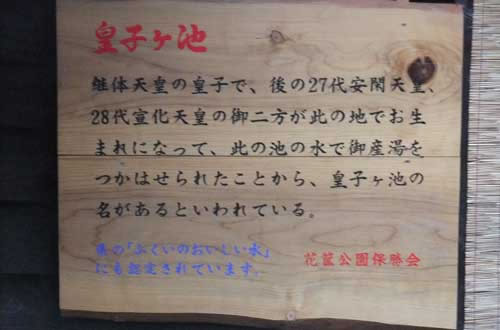 皇子ヶ池
継体天皇の皇子で、後の27代安閑天皇、
28代宣化天皇の御二方が此の地でお生
まれになって、此の池の水で御産湯を
つかはせられたことから、皇子ヶ池の
名があるといわれている。
県の「ふくいのおいしい水」
にも認定されています。
花筐公園保勝会